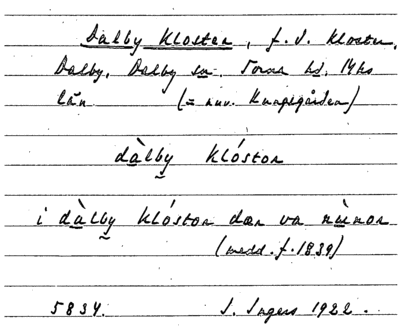 Dalby kloster, f.d. kloster,
Dalby, Dalby sn. Torna hd, Mhs
län (= nuv. Kungsgården)
dàlby klóstor
i dàlby klóstor dær va rùnor
(medd. f. 1839)
5834. I. Ingers 1922.